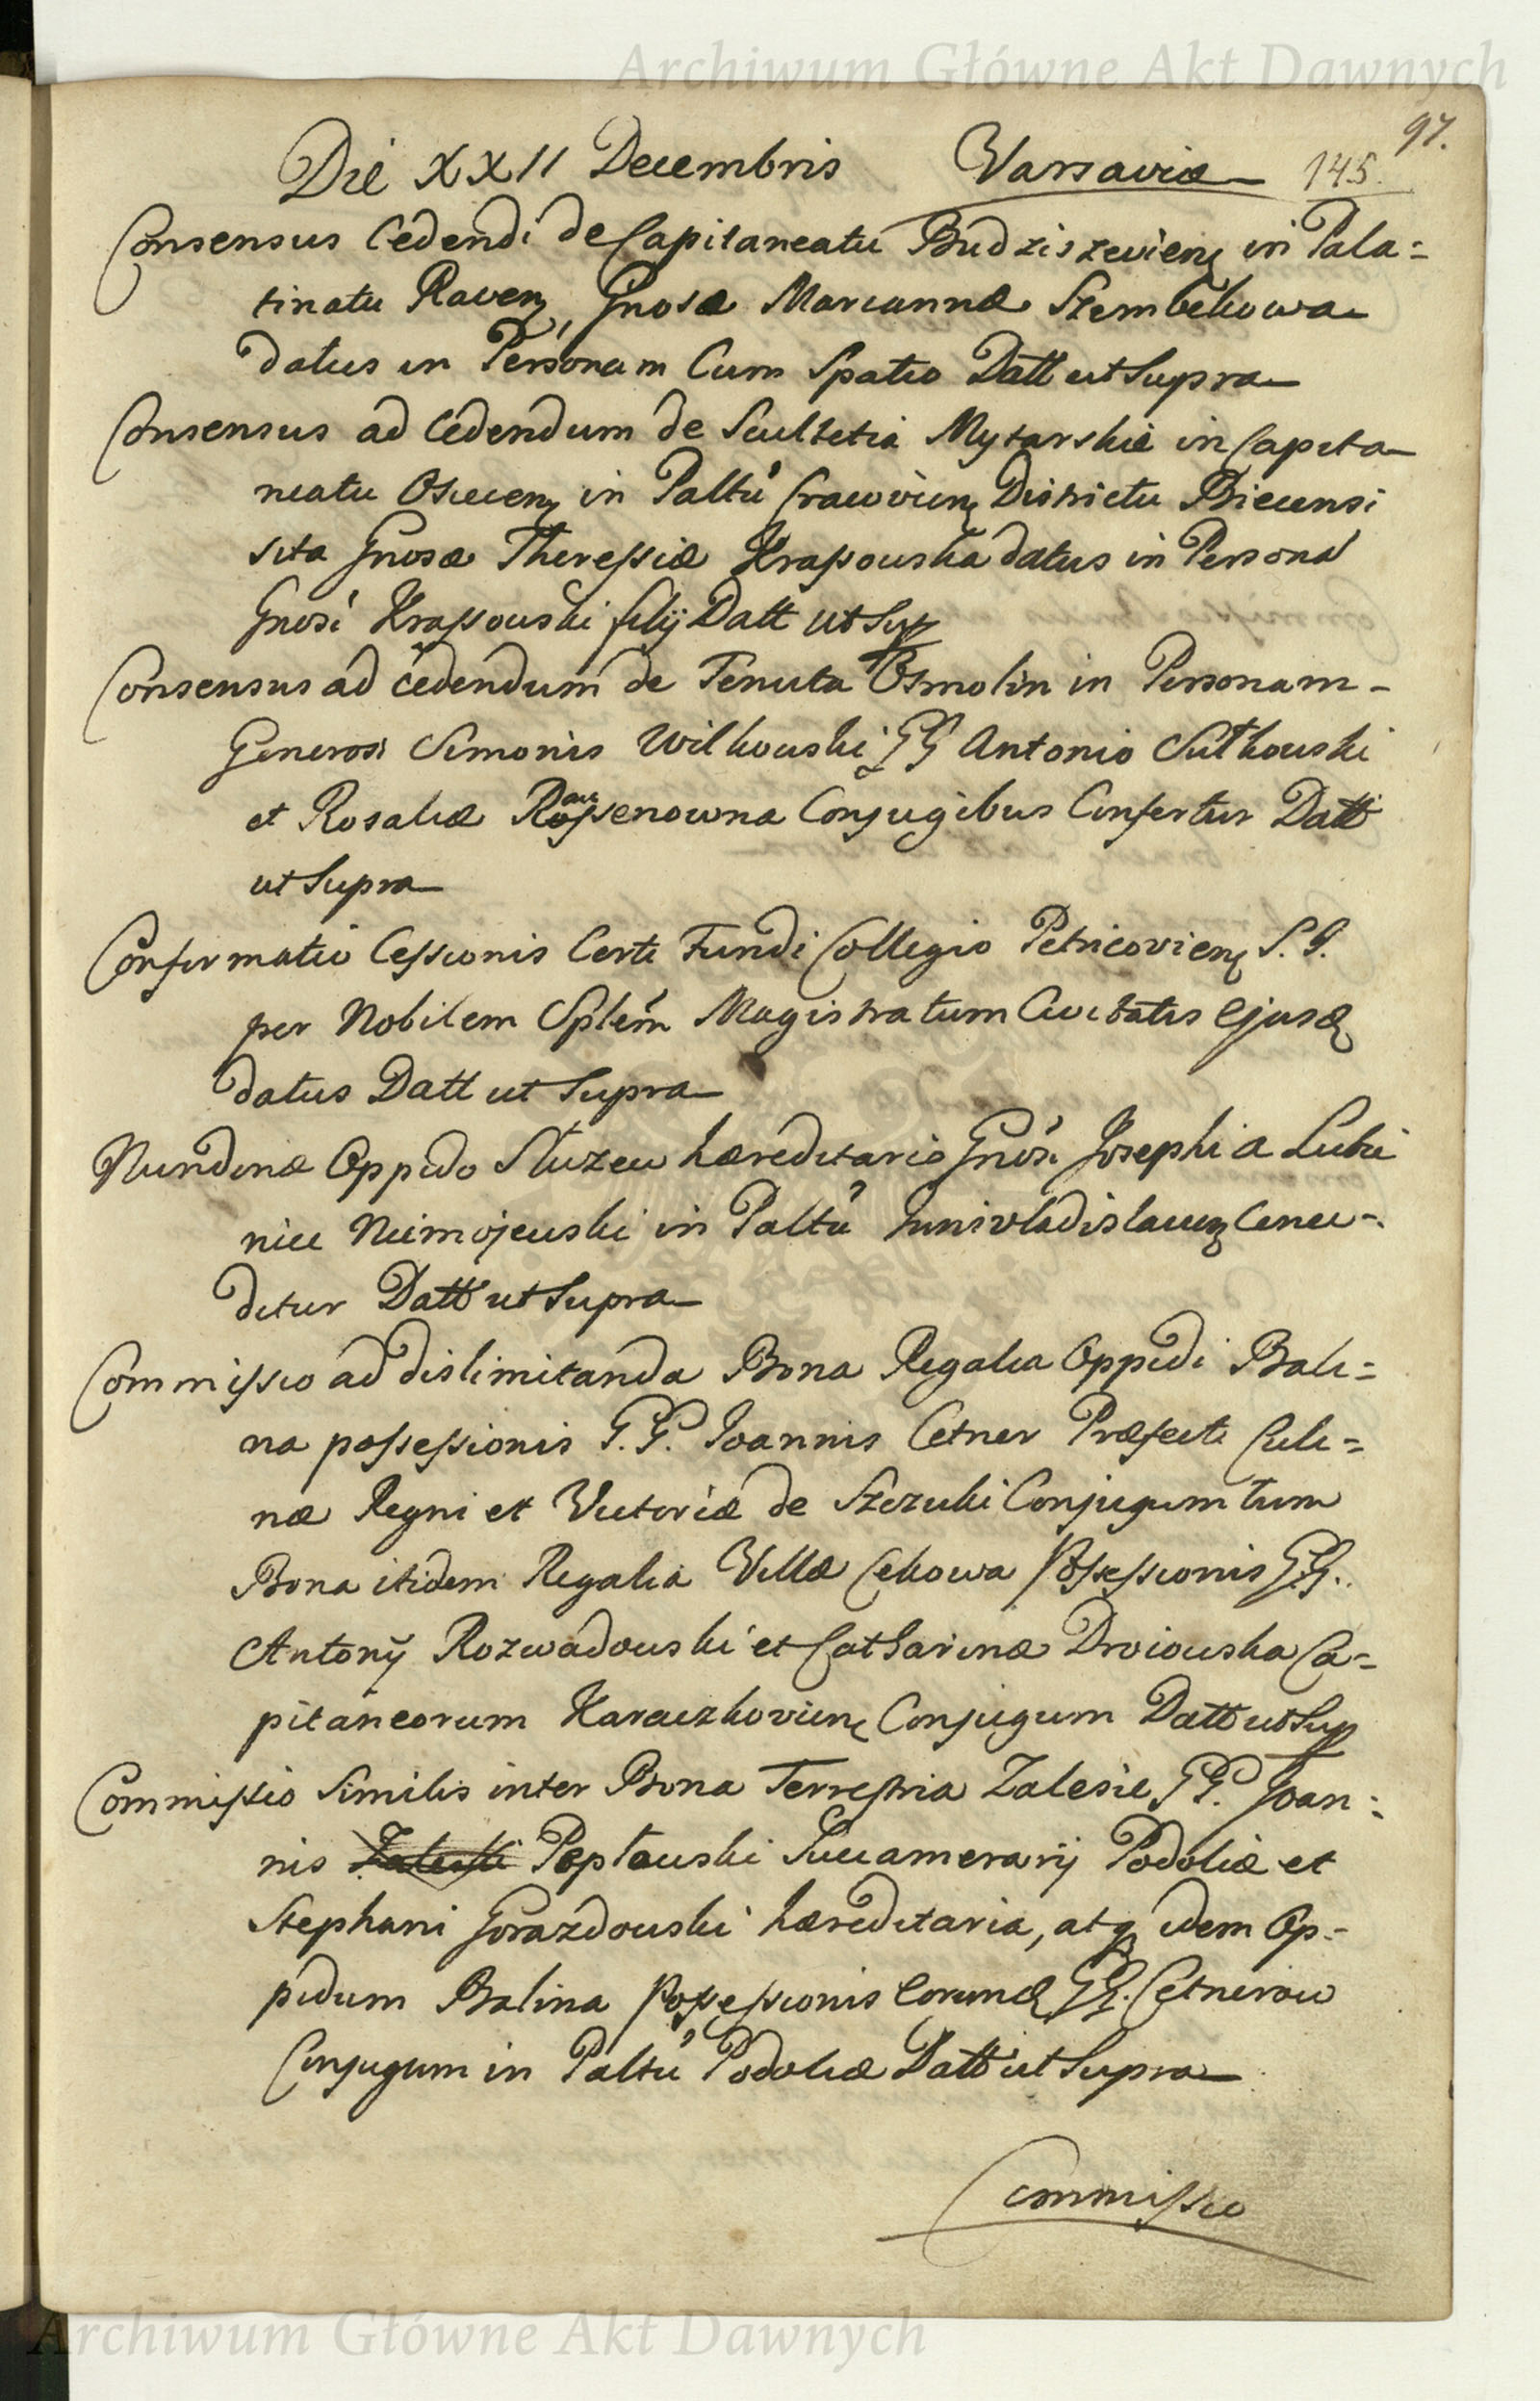 Archiwum Główne Akt Dawnych
97.
Die XXII Decembris Varsaviæ 145.
Consensus Cedendi de Capitaneatu Budziszevien in Pala=
tinatu Raven, Gnosæ Mariannæ Szembekowa
datus in Personam Cum Spatio Datt ut Supra
Consensus ad Cedendum de Scultetia Mytarskie in Capita
neatu Osiecen in Paltu Cracovien Districtu Biecensi
sita Gnosæ Theressiæ Krassouska datus in Persona
Gnosi Krassouski filij Datt ut Sup
Consensus ad cedendum de Tenuta Osmolin in Personam -
Generosi Simonis Wilkouski GG Antonio Sutkouski
et Rosaliæ Conjugibus Confertur Datt
ut Supra
Confirmatio Cessionis Certi Fundi Collegio Petricovien S. J.
per Nobilem Splem Magistratum Civitatis Ejusd
datus Datt ut Supra
Nundinæ Oppido Służew hæreditario Gnosi Josephi a Lubie
niec Niemojeuski in Paltu Junivladislauien Conce-
ditur Datt ut Supra
Commissio ad dislimitanda Bona Regalia Oppidi Bali=
na possessionis G. G. Joannis Cetner Præfecti Culi=
næ Regni et Victoriæ de Szczuki Conjugum tum
Bona itidem Regalia Villæ Cekowa Possessionis G.G.
Antonij Rozwadouski et Catharinæ Droiouska Ca=
pitaneorum Karaczkovien Conjugum Datt ut Sup
Commissio Similis inter Bona Terrestria Zalesie GG. Joan=
nis Zaleski Peptouski Succamerarij Podoliæ et
Stephani Gorazdouski hæreditaria, atq idem Op=
pidum Balina Possessionis Eorund GG. Cetnerow
Conjugum in Paltu Podoliæ Datt ut Supra
Commissio
Archiwum Główne Akt Dawnych